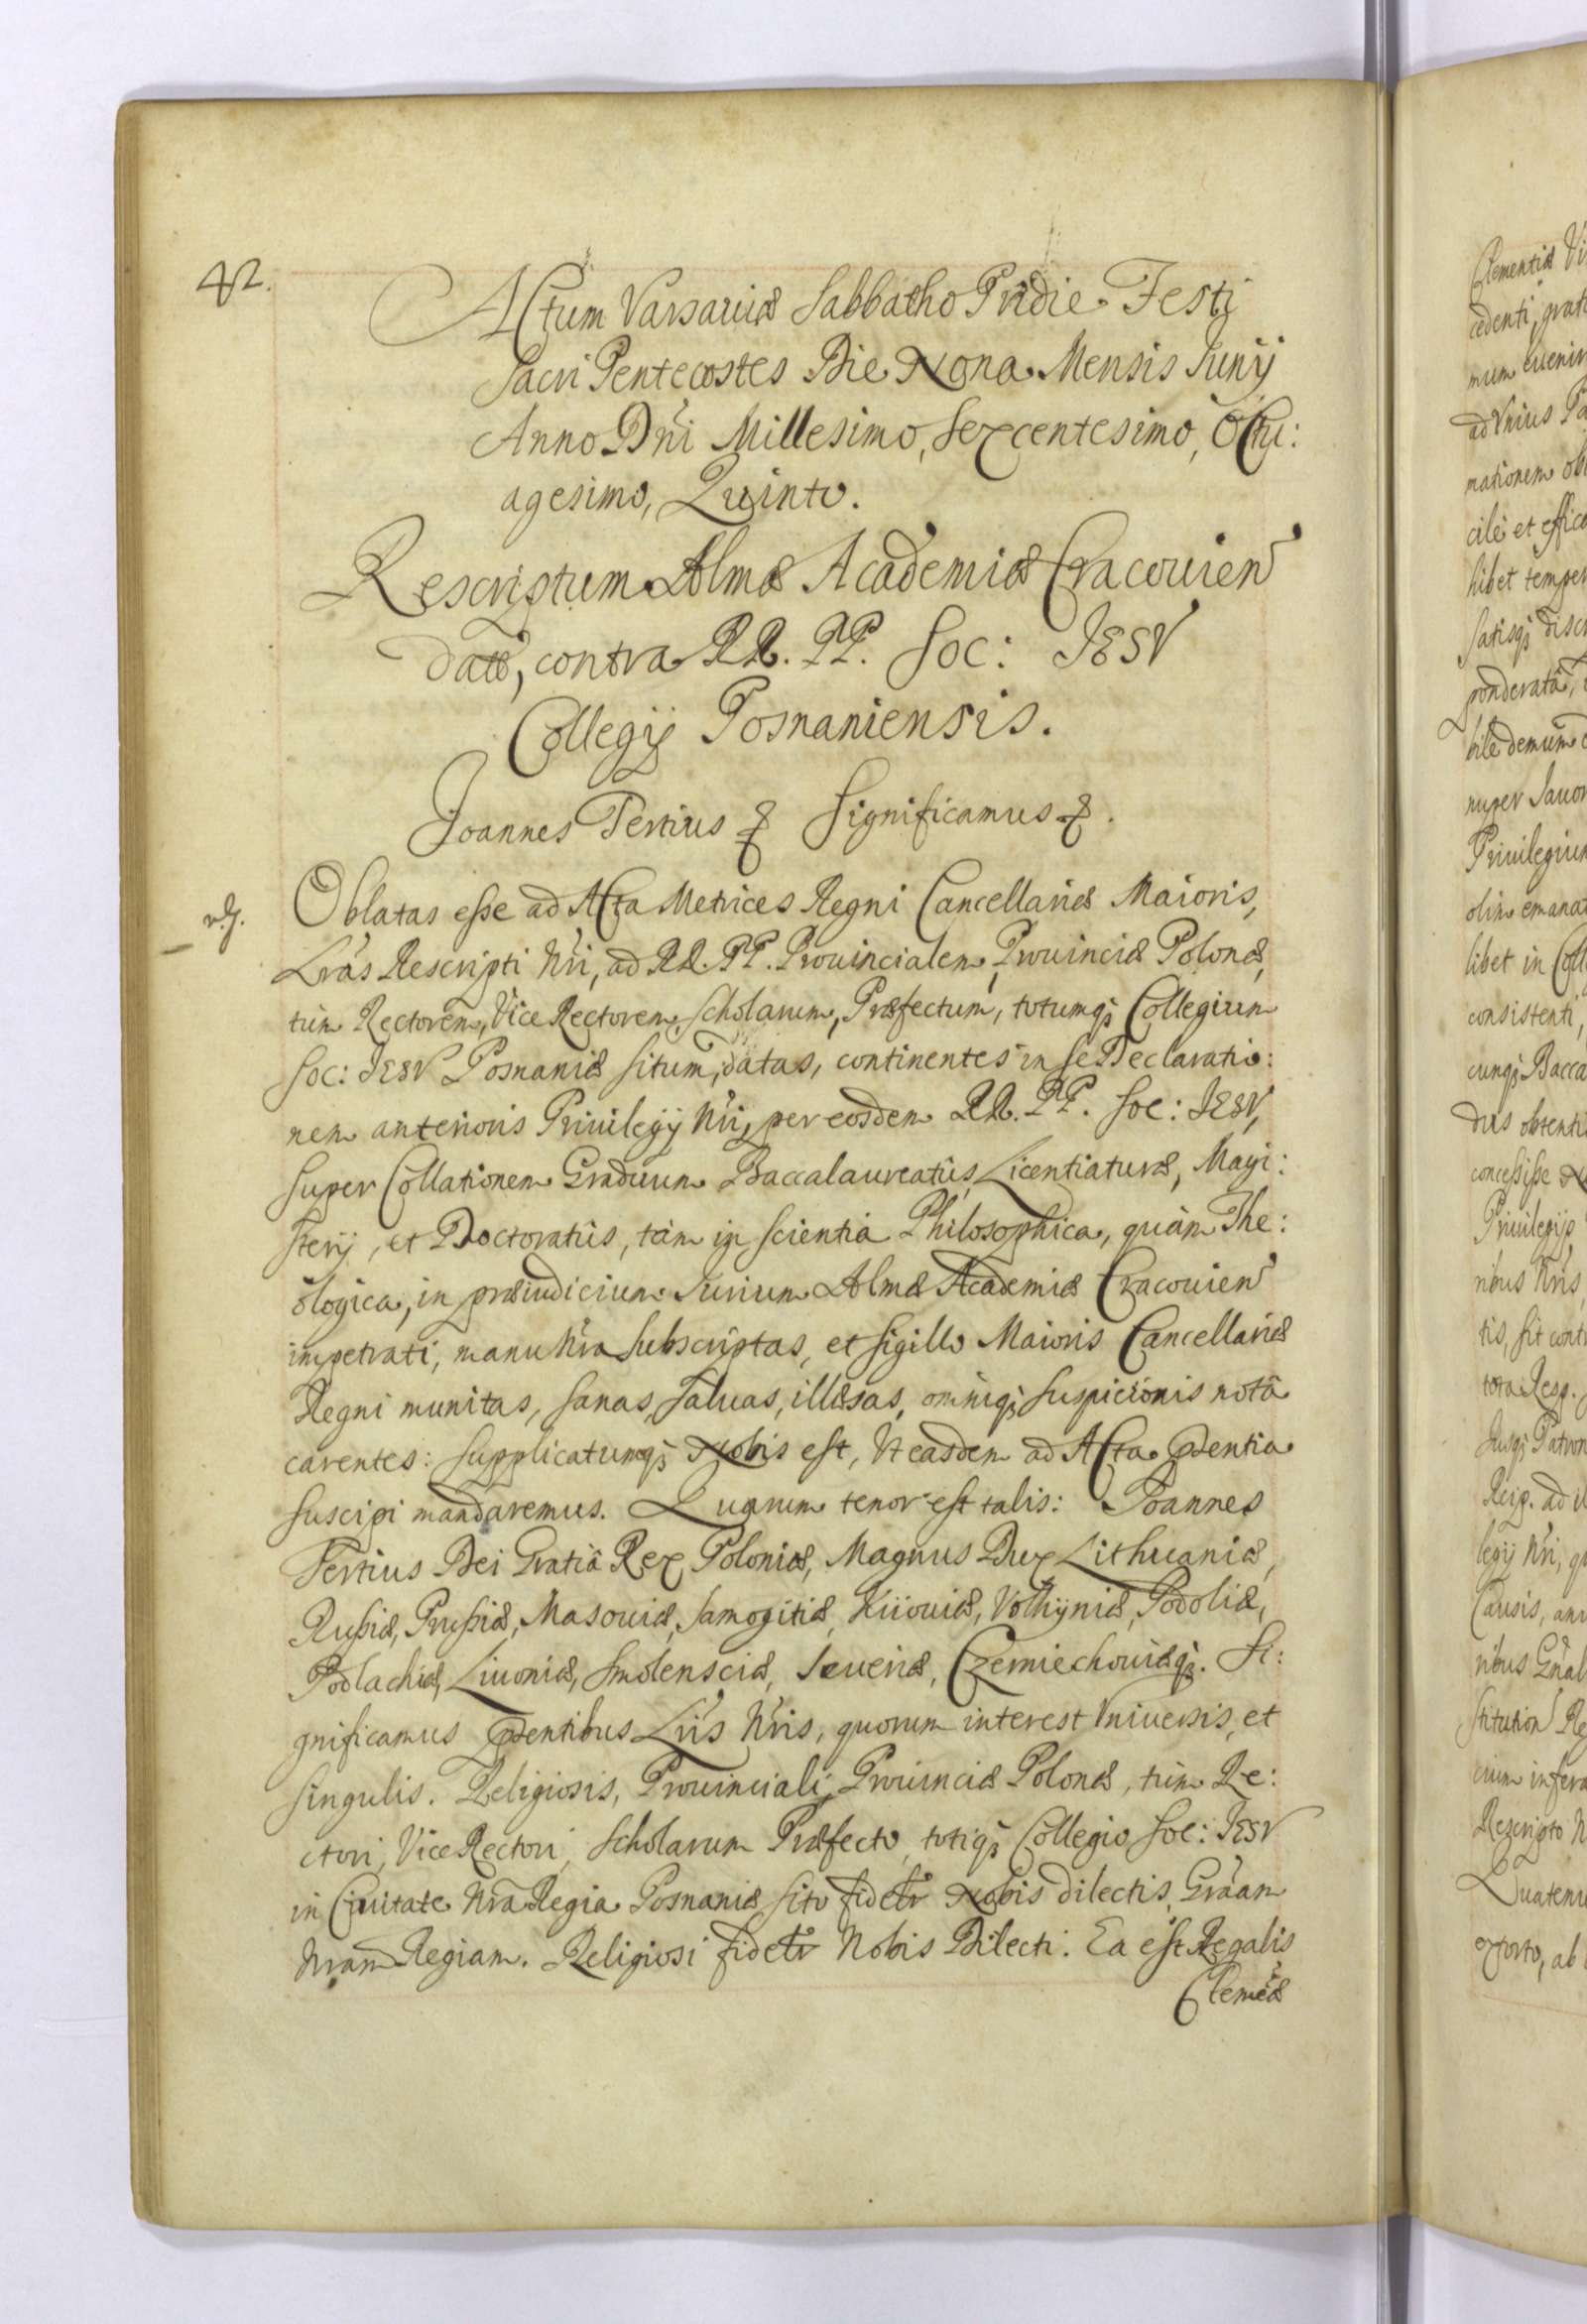 42.
Actum Varsaviæ Sabbatho Pridie Festi
Sacri Pentecostes Die Nona Mensis Junij
Anno Dni Millesimo, Sexcentesimo, Octu:
agesimo, Quinto.
Rescriptum Almæ Academiæ Cracovien
datũ, contra RR. PP. Soc: JESV
Collegij Posnaniensis.
Joannes Tertius & Significamus &.
Oblatas esse ad Acta Metrices Regni Cancellariæ Maioris,
Lrãs Rescripti Nri, ad RR. PP. Provincialem Provinciæ Polonæ,
tùm Rectorem, Vice Rectorem, Scholarum, Præfectum, totumq; Collegium
Soc: JESV Posnaniæ situm, datas, continentes in se Declaratio:
nem anterioris Privilegij Nri, per eosdem RR. PP. Soc: JESV,
super Collationem Graduum Baccalaureatûs, Licentiaturæ, Magi:
sterij, et Doctoratûs, tàm in scientia Philosophica, quàm The:
ologica, in præiudicium Iurium Almæ Academiæ Cracovien
impetrati, manu Nra subscriptas, et sigillo Maioris Cancellariæ
Regni munitas, sanas, salvas, illæsas, omniq; suspicionis notâ
carentes: supplicatumq; Nobis est, Vt easdem ad Acta pñtentia
suscipi mandaremus. Quarum tenor est talis: Joannes
Tertius Dei Gratiâ Rex Poloniæ, Magnus Dux Lithuaniæ,
Russiæ, Prussiæ, Masoviæ, Samogitiæ, Kiioviæ, Volhyniæ, Podoliæ,
Podlachiæ, Livoniæ, Smolensciæ, Severiæ, Czerniechoviæq;. Si:
gnificamus Lris Nris, quorum interest Vniversis, et
singulis. Religiosis, Provinciali Provinciæ Polonæ, tùm Re:
ctori, Vice Rectori, Scholarum Præfecto, totiq; Collegio Soc: JESV
in Civitate Nra Regia Posnaniæ sito fidelr Nobis dilectis, Grãam
Nram Regiam. Religiosi fidelr Nobis Dilecti. Ea est Regalis